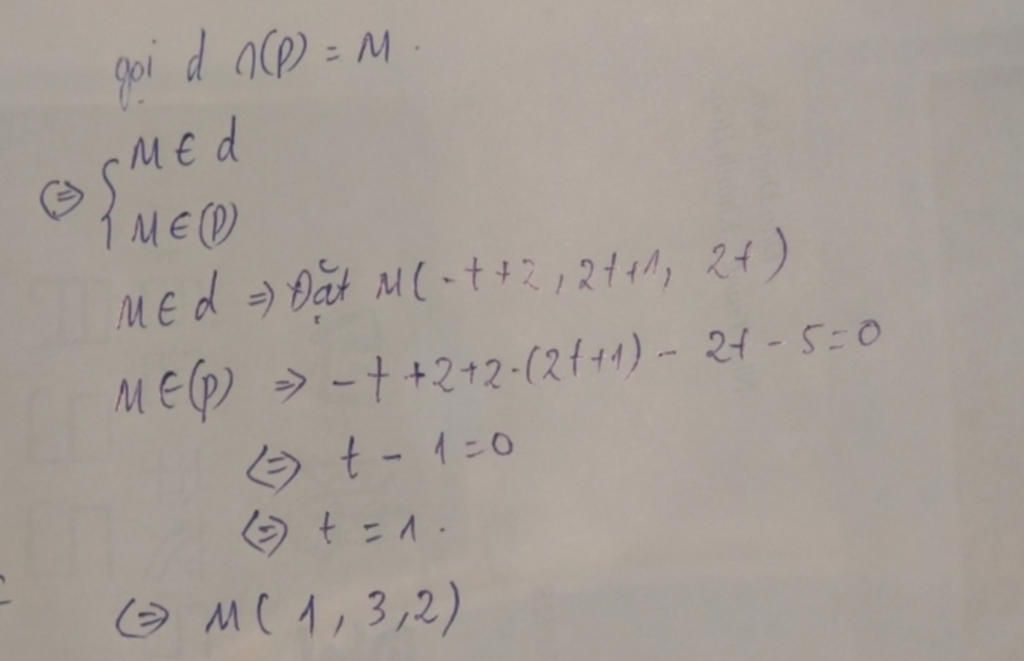 gọi d ∩(P) = M.
⇔ { M ∈ d
M ∈ (P)
M ∈ d ⇒ Đặt M( -t+2, 2t+1, 2t)
M ∈ (P) ⇒ -t+2+2.(2t+1) - 2t - 5=0
⇔ t - 1=0
⇔ t = 1.
⇔ M( 1, 3,2)